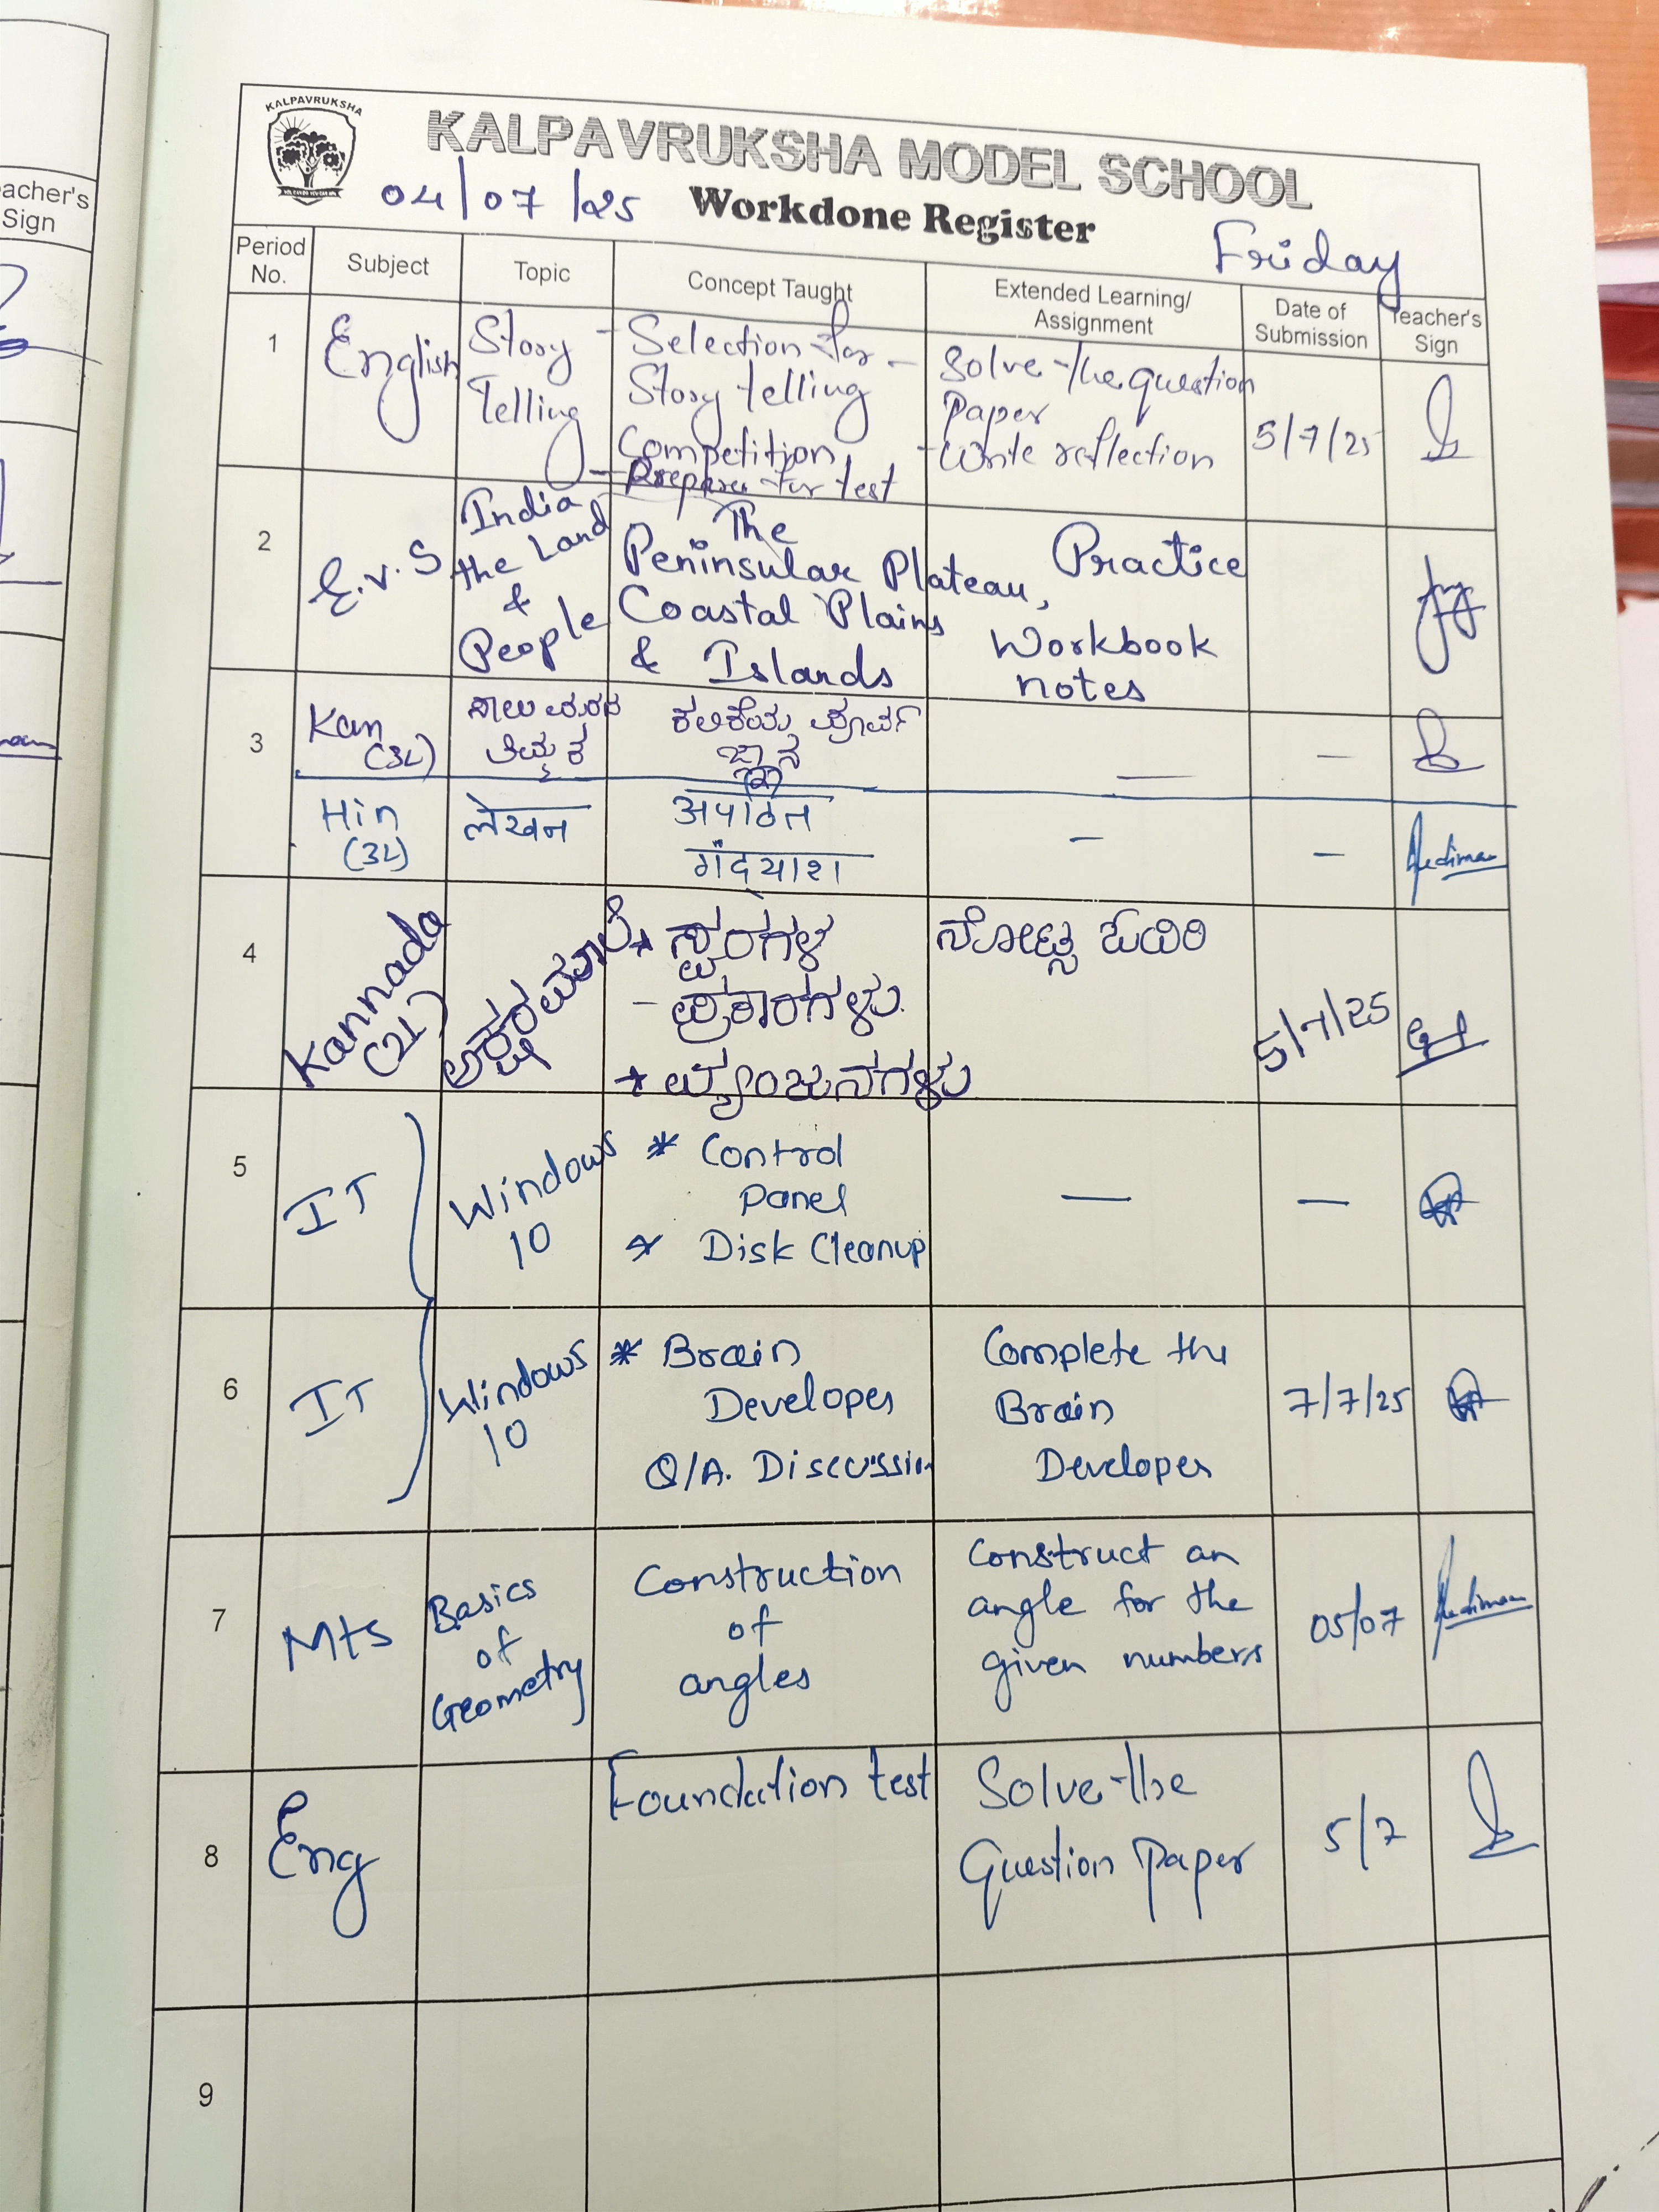 KALPAVRUKSHA
KALPAVRUKSHA MODEL SCHOOL
04/07/25 Workdone Register
Friday
Period No.
Subject
Topic
Concept Taught
Extended Learning/ Assignment
Date of Submission
Teacher's Sign
1
English
Story
Telling
- Selection for
Story telling
Competition
- Prepare for test
- Solve the question
Paper
- Write reflection
5/7/25
2
E.V.S
India
the Land
&
People
The
Peninsular Plateau,
Coastal Plains
& Islands
Practice
Workbook
notes
3
Kan
(3L)
ಸಾಲು ಮರದ
ತಿಮ್ಮಕ್ಕ
ಕಲಿಕೆಯ ಪೂರ್ವ
ಜ್ಞಾನ
—
—
Hin
(3L)
लेखन
अपठित
गंद्याश
—
—
4
Kannada
(2L)
ಅಕ್ಷರಮಾಲೆ
* ಸ್ವರಗಳ
- ಪ್ರಕಾರಗಳು.
* ವ್ಯಂಜನಗಳು
ನೋಟ್ಸ್ ಓದಿರಿ
5/7/25
5
IT
Windows
10
* Control
Panel
* Disk Cleanup
—
—
6
IT
Windows
10
* Brain
Developer
Q/A. Discussion
Complete the
Brain
Developer
7/7/25
7
Mts
Basics
of
Geometry
Construction
of
angles
Construct an
angle for the
given numbers
05/07
8
Eng
Foundation test
Solve the
Question Paper
5/7
9
eacher's
Sign